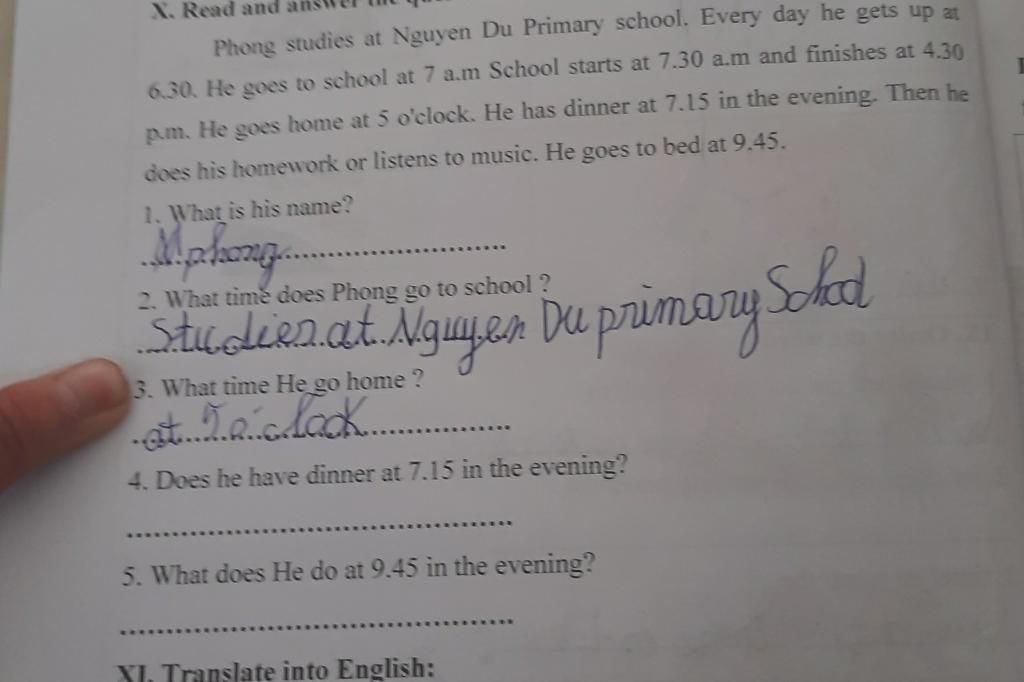 X. Read and answer the
Phong studies at Nguyen Du Primary school. Every day he gets up at
6.30. He goes to school at 7 a.m School starts at 7.30 a.m and finishes at 4.30
p.m. He goes home at 5 o'clock. He has dinner at 7.15 in the evening. Then he
does his homework or listens to music. He goes to bed at 9.45.
1. What is his name?
phong
2. What time does Phong go to school ?
Studies at Nguyen Du primary School
3. What time He go home ?
at 5 o'clock
4. Does he have dinner at 7.15 in the evening?
5. What does He do at 9.45 in the evening?
XI. Translate into English: